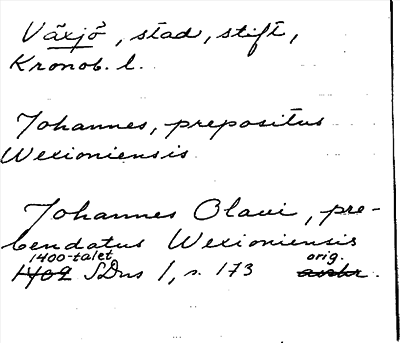 Växjö, stad, stift,
Kronob. l.
Johannes, prepositus
Wexioniensis
Johannes Olaui, pre-
bendatus Wexioniensis
1400-talet orig.
1402 SDns 1, s. 173 avskr.